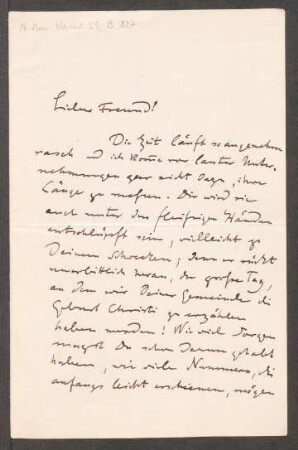 N. Mus. Nachl. 59, B 827
Lieber Freund!
Die Zeit läuft so angenehm
rasch und ich komme vor lauter Unter-
nehmungen gar nicht dazu, ihre
Länge zu messen. Dir wird sie
auch unter den fleißigen Händen
entschlüpft sein, vielleicht zu
Deinem Schrecken; denn es rückt
unerbittlich heran, der große Tag,
an dem wir Deiner Gemeinde die
Geburt Christi zu erzählen
haben werden! Wie viel Sorgen
magst Du schon darum gehabt
haben, wie viele Nummern, die
anfangs leicht erschienen, mögen